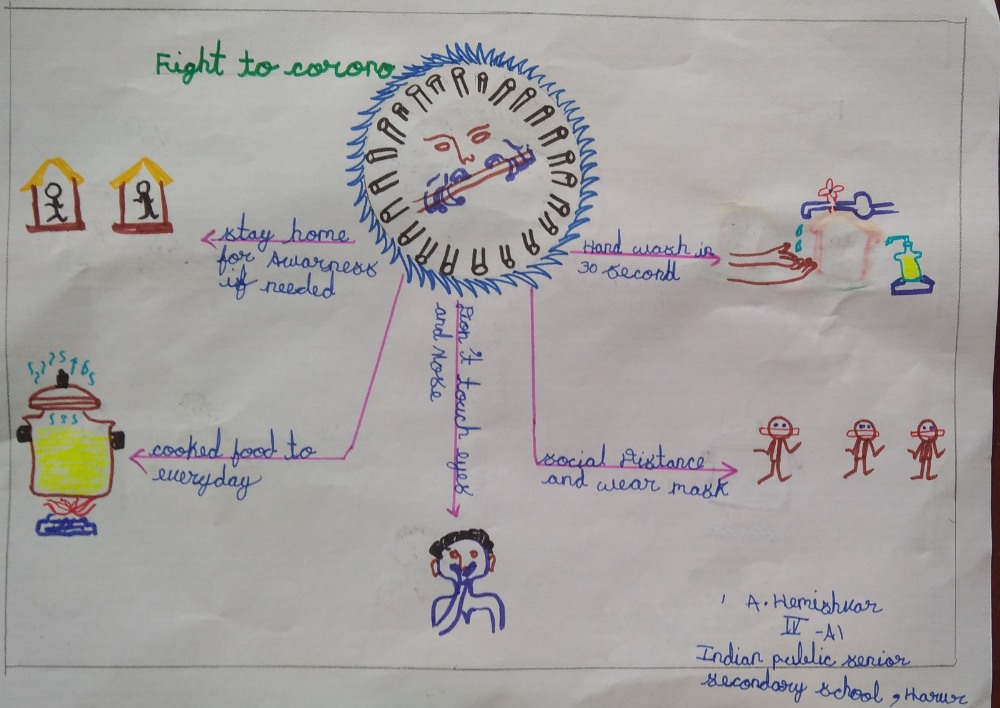 Fight to corono
stay home
for Awarness
if needed
Hand wash in
30 second
Don't touch eyes
and Nose
cooked food to
everyday
social Distance
and wear mask
A. Hemishkar
IV - A1
Indian public senior
secondary school, Harur